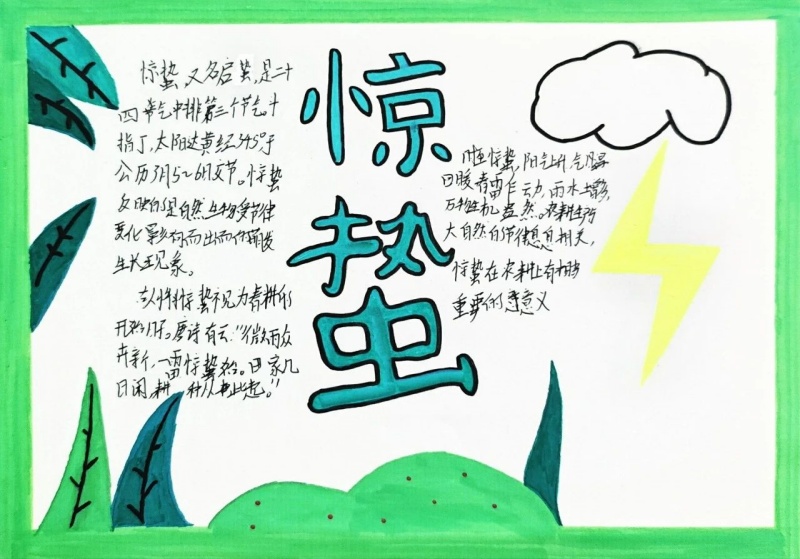 惊蛰
惊蛰,又名启蛰,是二十
四节气中排第三个节气,斗
指丁,太阳达黄经345°,于
公历3月5~6日交节。惊蛰
反映的是自然生物受节律
变化影响而出而现萌发
生长现象。
古人将惊蛰视为春耕的
开始。唐诗有云:"微雨众
卉新,一雷惊蛰始。田家几
日闲,耕种从此起。"
时至惊蛰,阳气上升,气温
回暖,春雷乍动,雨水增多,
万物生机盎然。农耕生产
大自然的节律息息相关,
惊蛰在农耕上有相当
重要的意义